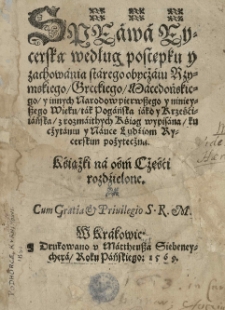 SPRAWA RY-
cerska według postępku y
zachowánia stárego obyczáiu Rzy-
mskiego/ Greckiego/ Mácedońskie-
go/ y innych Narodow pierwszego y ninieyß-
szego Wieku/ ták Pogáńska iáko y Krześći-
iáńska/ z rozmáitych Kśiąg wypisána/ ku
cżytániu y Náuce Ludźiom Ry-
cerskim pożyteczna.
Książki ná ośm Części
rozdzielone.
Cum Gratia & Priuilegio S. R. M.
W Krákowie
Drukowano v Mattheusza Siebeney-
cherá/ Roku Páńskiego: 1569.